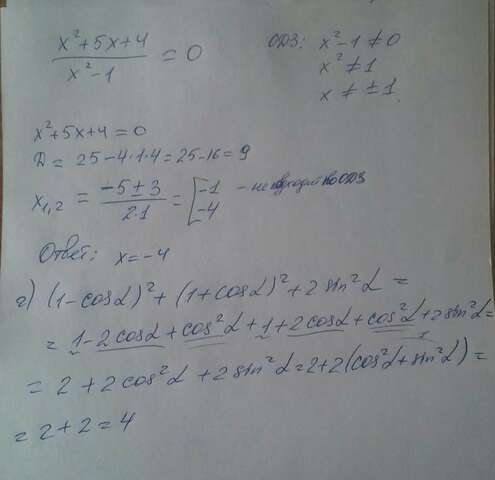 x²+5x+4 / x²-1 = 0 ОДЗ: x²-1≠0
x²≠1
x≠±1.
x²+5x+4=0
D=25-4·1·4=25-16=9
x₁,₂ = -5±3 / 2·1 = [-1 - не по ОДЗ
-4
Ответ: x=-4
г) (1-cosα)²+(1+cosα)²+2sin²α=
=1-2cosα+cos²α+1+2cosα+cos²α+2sin²α=
=2+2cos²α+2sin²α=2+2(cos²α+sin²α)=
1
=2+2=4